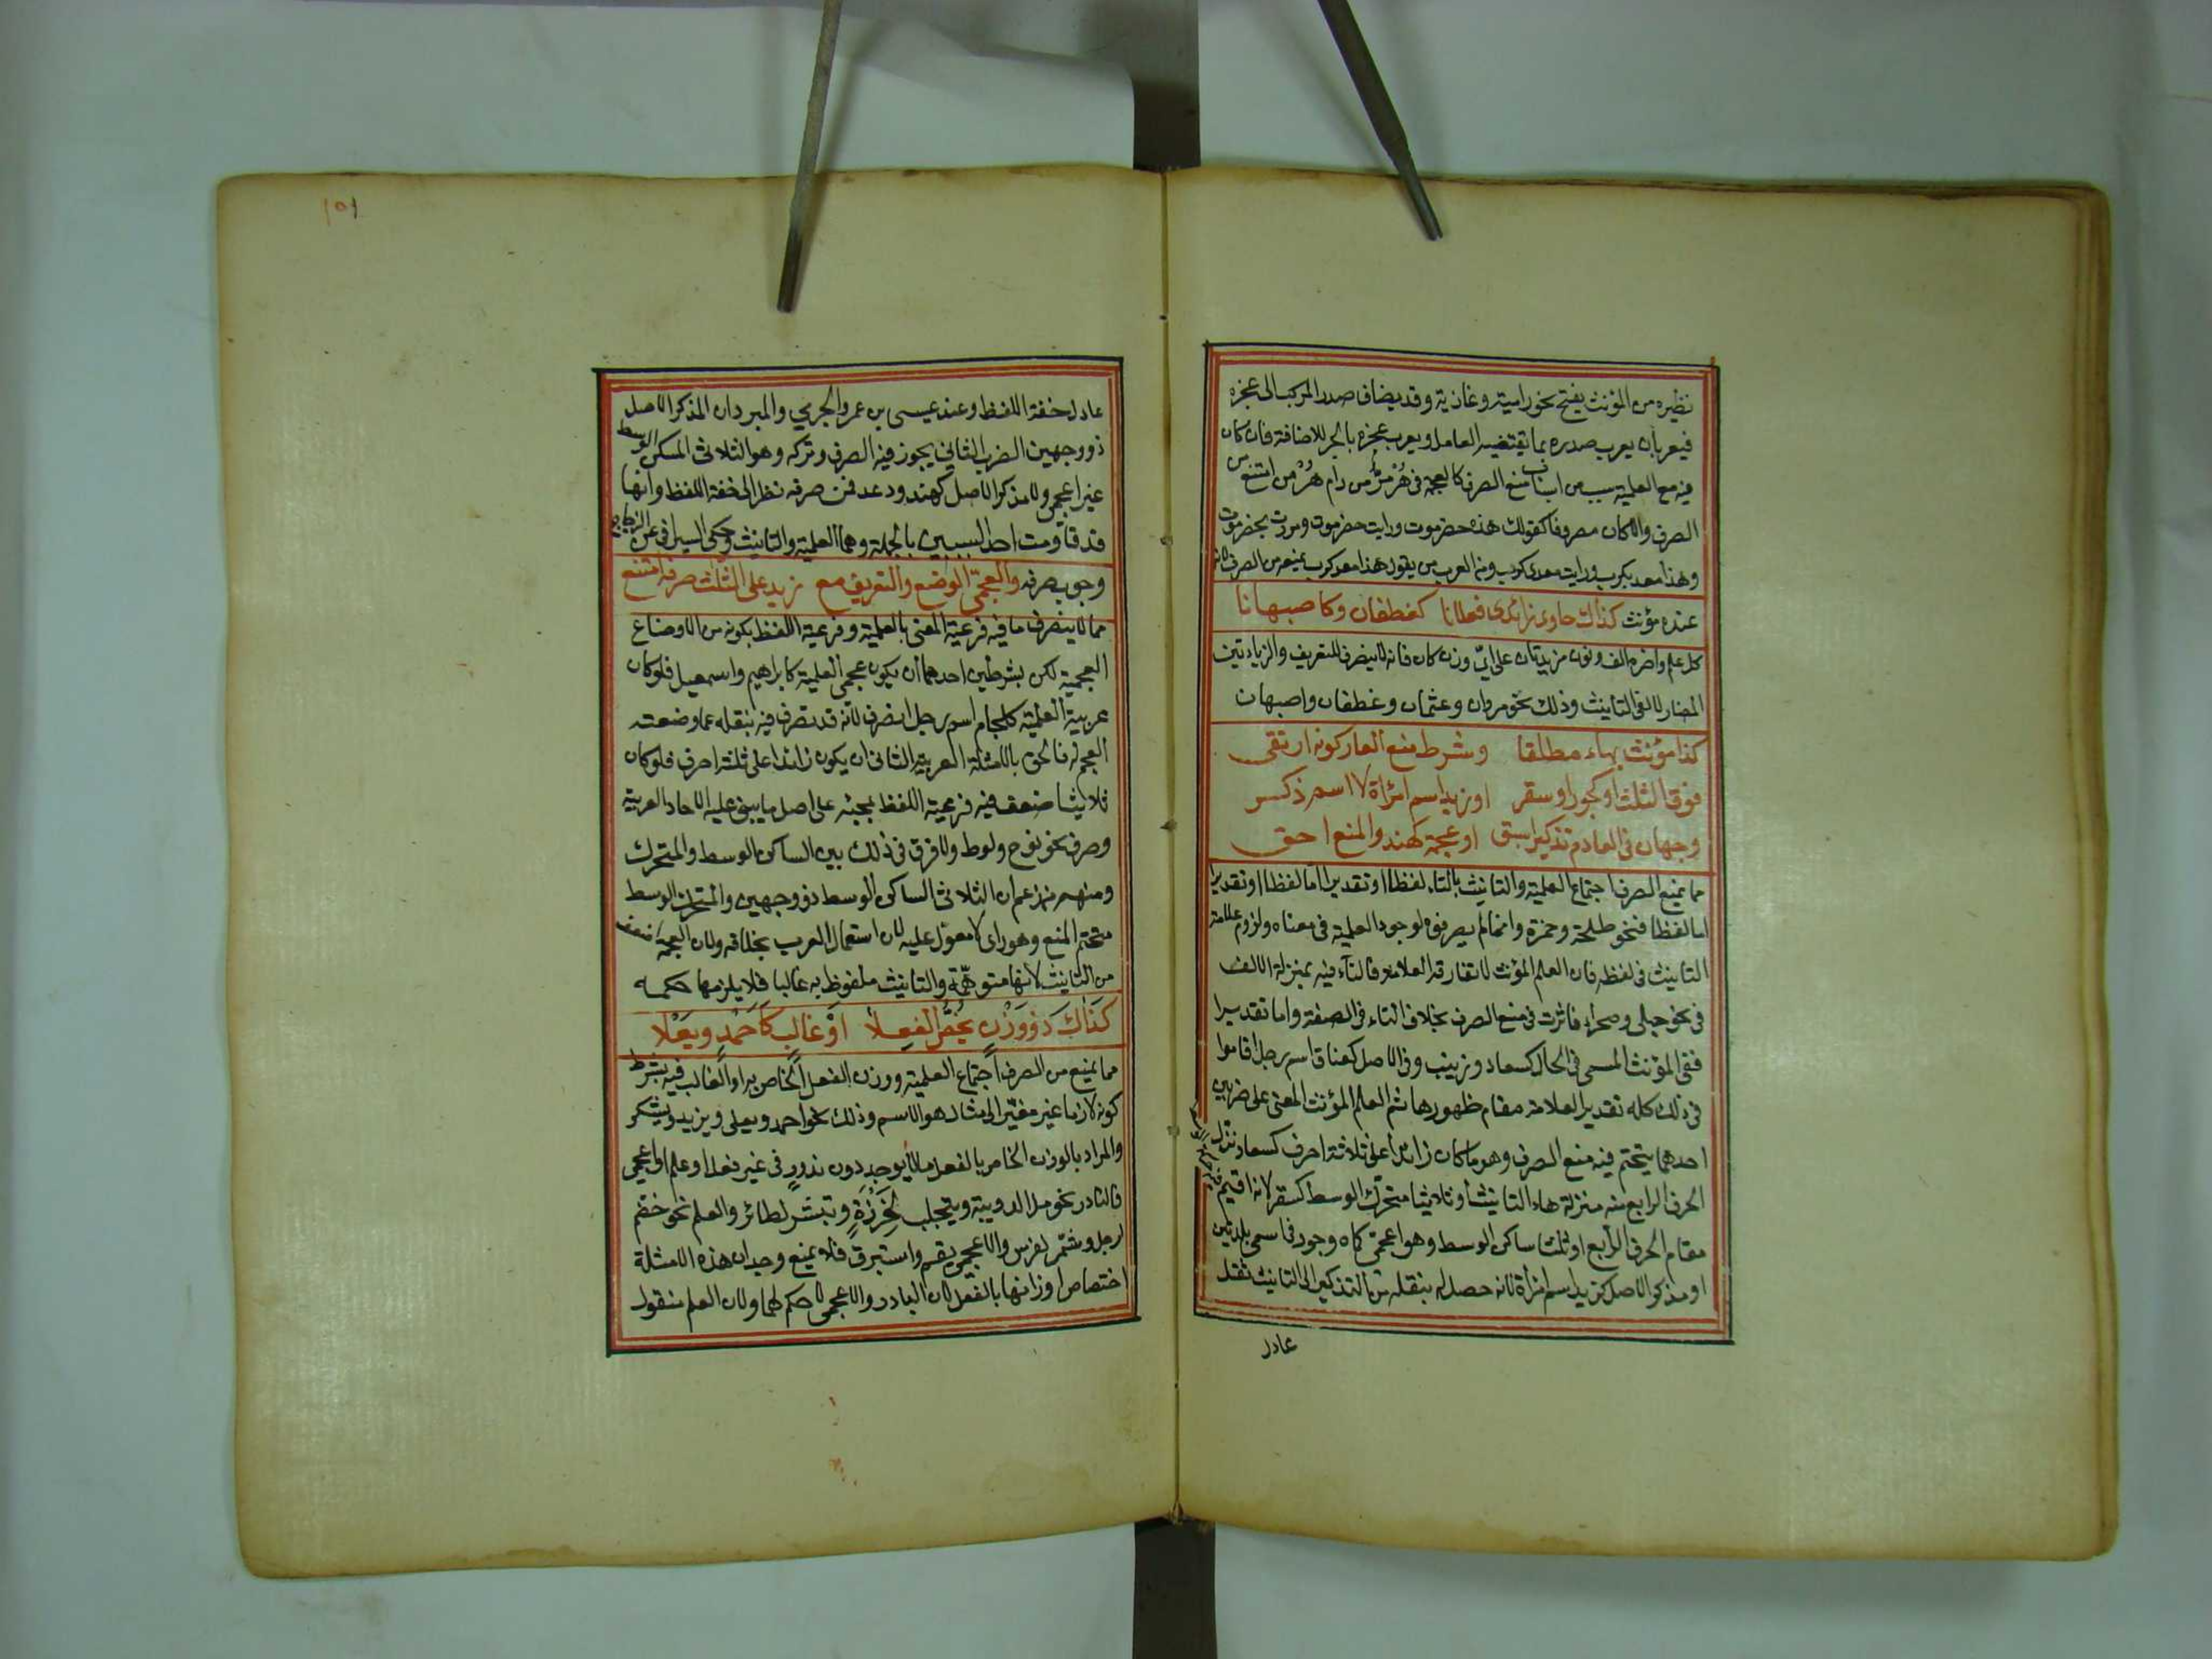 نظيره من المؤنث يفتح نحو راميته وغازيته وقد يضاف صدر المركب الى عجزه
فيعرب صدره بما يقتضيه العامل ويعرب عجزه بالجر للاضافة فان كان
فيه مع العلمية سبب من اسباب منع الصرف كالعجمة في هرمز من رام هرمز امتنع من
الصرف والا كان مصروفا كقولك هذه حضرموت ورايت حضرموت ومررت بحضرموت
وهذا معديكرب ورايت معدي كرب ومن العرب من يقول هذا معدي كرب يمنعه من الصرف لانه
عنده مؤنث كذاك حاوي زائدي فعلانا كغطفان وكاصبهانا
كل علم واخره الف ونون مزيدتان على اي وزن كان فانه لا ينصرف للتعريف والزيادتين
المضارعتين لالفي التانيث وذلك نحو مروان وعثمان وغطفان واصبهان
كذا مؤنث بهاء مطلقا وشرط منع العار كونه ارتقى
فوق الثلث او كجور او سقر او زيد اسم امراة لا اسم ذكر
وجهان في العادم تذكيرا سبق او عجمة كهند والمنع احق
مما يمنع الصرف اجتماع العلمية والتانيث بالتاء لفظا او تقديرا اما لفظا او تقديرا
اما لفظا فنحو طلحة وحمزة وانما لم يصرفوه لوجود العلمية في معناه ولزوم علامة
التانيث في لفظه فان العلم المؤنث لا تفارقه العلامة فالتاء فيه بمنزلة الالف
في نحو حبلى وصحراء فاثرت في منع الصرف بخلاف التاء في الصفة واما تقديرا
ففي المؤنث المسمى في الحال كسعاد وزينب وفي الاصل كعناق اسم رجل اقاموا
في ذلك كله تقدير العلامة مقام ظهورها ثم العلم المؤنث المعنى على ضربين
احدهما يتحتم فيه منع الصرف وهو ما كان زائدا على ثلاثة احرف كسعاد نزل
الحرف الرابع منه منزلة هاء التانيث او ثلاثيا متحرك الوسط كسقر لانه اقيم فيه حركة الوسط
مقام الحرف الرابع او ثلثا ساكن الوسط وهو اعجمي كماه وجور في اسمي بلدتين
او مذكر الاصل كزيد اسم امرأة لانه حصل له بنقله من التذكير الى التانيث ثقل
عادل
١٥١
عادل خفة اللفظ وعند عيسى بن عمر والجرمي والمبرد ان المذكر الاصل
ذو وجهين الضرب الثاني يجوز فيه الصرف وتركه وهو الثلاثي المسكن الوسط
غير اعجمي ولا مذكر الاصل كهند ودعد فمن صرفه نظر الى خفة اللفظ وانها
قد قاومت احد السببين بالجملة وهما العلمية والتانيث وحكى السيرافي عن الزجاج
وجوب صرفه والعجمي الوضع والتعريف مع زيد على الثلث صرفه امتنع
مما لا ينصرف ما فيه فرعية المعنى بالعلمية وفرعية اللفظ بكونه من الاوضاع
العجمية لكن بشرطين احدهما ان يكون عجمي العلمية كابراهيم واسمعيل فلو كان
عربية العلمية كلجام اسم رجل انصرف لانه قد تصرف فيه بنقله عما وضعته
العجم له فالحق بالامثلة العربية الثاني ان يكون زائدا على ثلثة احرف فلو كان
ثلاثيا ضعف فيه فرعية اللفظ بمجيئه على اصل ما يبنى عليه الاحاد العربية
وصرف نحو نوح ولوط ولا فرق في ذلك بين الساكن الوسط والمتحرك
ومنهم من زعم ان الثلاثي الساكن الوسط ذو وجهين والمتحرك الوسط
متحتم المنع وهو راى لا معول عليه لان استعمال العرب بخلافه ولان العجمة اضعف
من التانيث لانها متوهمة والتانيث ملفوظ به غالبا فلا يلزمها حكمه
كذاك ذو وزن يخص الفعلا او غالب كاحمد ويعلا
مما يمنع من الصرف اجتماع العلمية ووزن الفعل الخاص به او الغالب فيه بشرط
كونه لازما غير مغير الى مثال هو الاسم وذلك نحو احمد ويعلى ويزيد ويشكر
والمراد بالوزن الخاص بالفعل ما لا يوجد دون ندور في غير فعل او علم او اعجمي
فالنادر نحو دئل لدويبة وينجلب لخرزة وتبشر لطائر والعلم نحو خضم
لرجل وشمر لفرس والاعجمي بقم واستبرق فلا يمنع وجدان هذه الامثلة
اختصاص اوزانها بالفعل لان النادر والاعجمي لا حكم لهما ولان العلم منقول